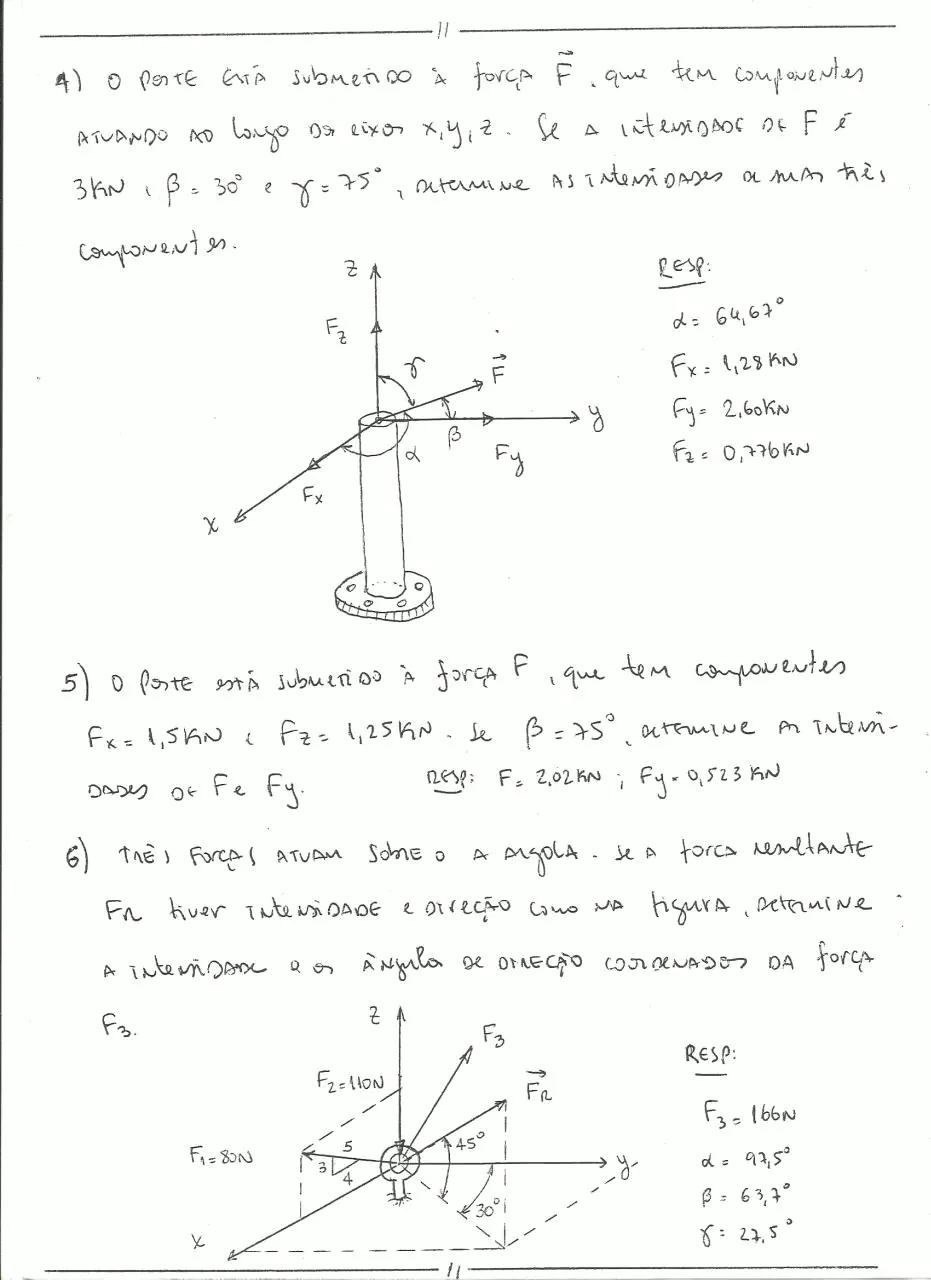 11
4) O POSTE ESTÁ SUBMETIDO À força F⃗, que tem componentes
ATUANDO AO longo dos eixos x, y, z. Se A intensidade de F é
3KN, β = 30° e γ = 75°, determine AS intensidades de suas três
componentes.
RESP:
α = 64,67°
Fx = 1,28KN
Fy = 2,60KN
Fz = 0,776KN
z
Fz
γ
F⃗
y
β
α
Fy
Fx
x
5) O Poste está submetido à força F, que tem componentes
Fx = 1,5KN e Fz = 1,25KN. Se β = 75°, determine as intensi-
dades de F e Fy.
RESP: F = 2,02KN ; Fy = 0,523KN
6) Três Forças ATUAM Sobre o A Argola. Se A forca resultante
FR tiver intensidade e direção como na figura, determine
A intensidade e os ângulos de direção coordenados da força
F3.
z
F3
F2=110N
F⃗R
F1=80N
5
3
4
45°
30°
y
x
RESP:
F3 = 166N
α = 97,5°
β = 63,7°
γ = 27,5°
11